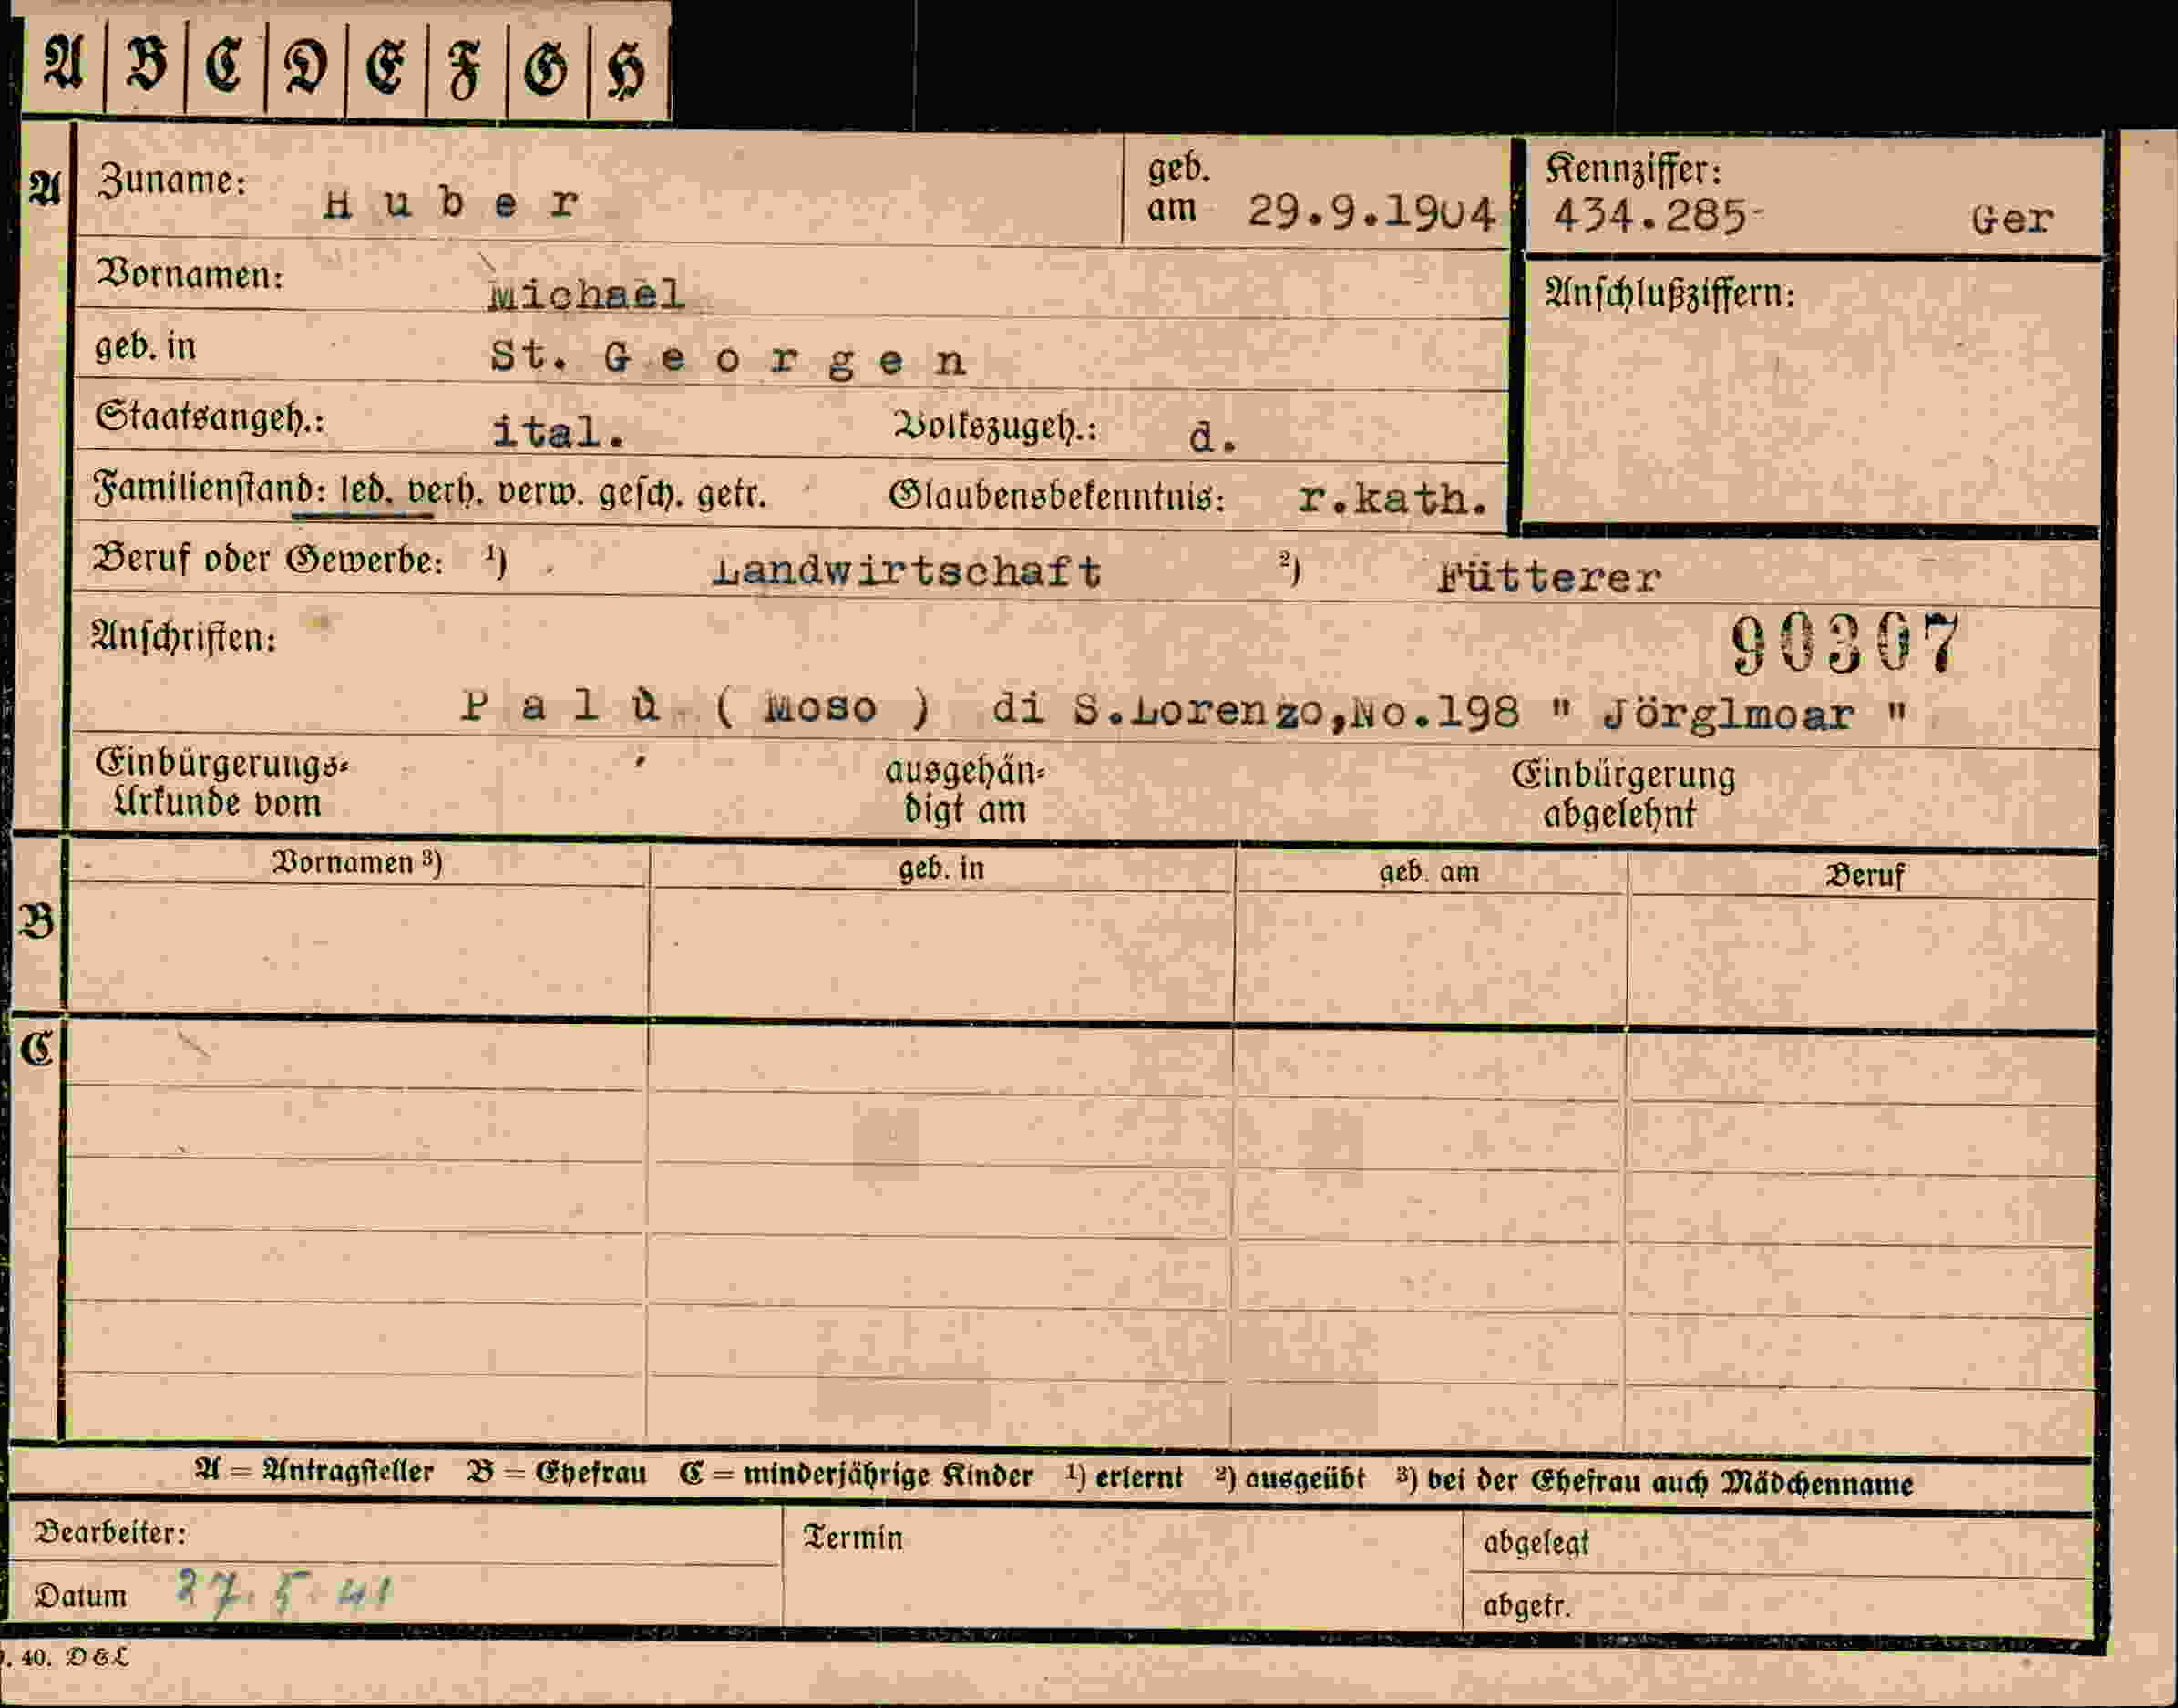 A B C D E F G H
A Zuname: Huber geb. am 29.9.1904 Kennziffer: 434.285- Ger
Vornamen: Michael Anschlußziffern:
geb. in St. Georgen
Staatsangeh.: ital. Volkszugeh.: d.
Familienstand: led. verh. verw. gesch. getr. Glaubensbekenntnis: r.kath.
Beruf oder Gewerbe: ¹) Landwirtschaft ²) Fütterer
Anschriften: 90307
Palù ( Moso ) di S.Lorenzo,No.198 " Jörglmoar "
Einbürgerungs- ausgehän- Einbürgerung
Urkunde vom digt am abgelehnt
Vornamen ³) geb. in geb. am Beruf
B
C
A = Antragsteller B = Ehefrau C = minderjährige Kinder ¹) erlernt ²) ausgeübt ³) bei der Ehefrau auch Mädchenname
Bearbeiter: Termin abgelegt
Datum 27.5.41 abgetr.
. 40. D & L